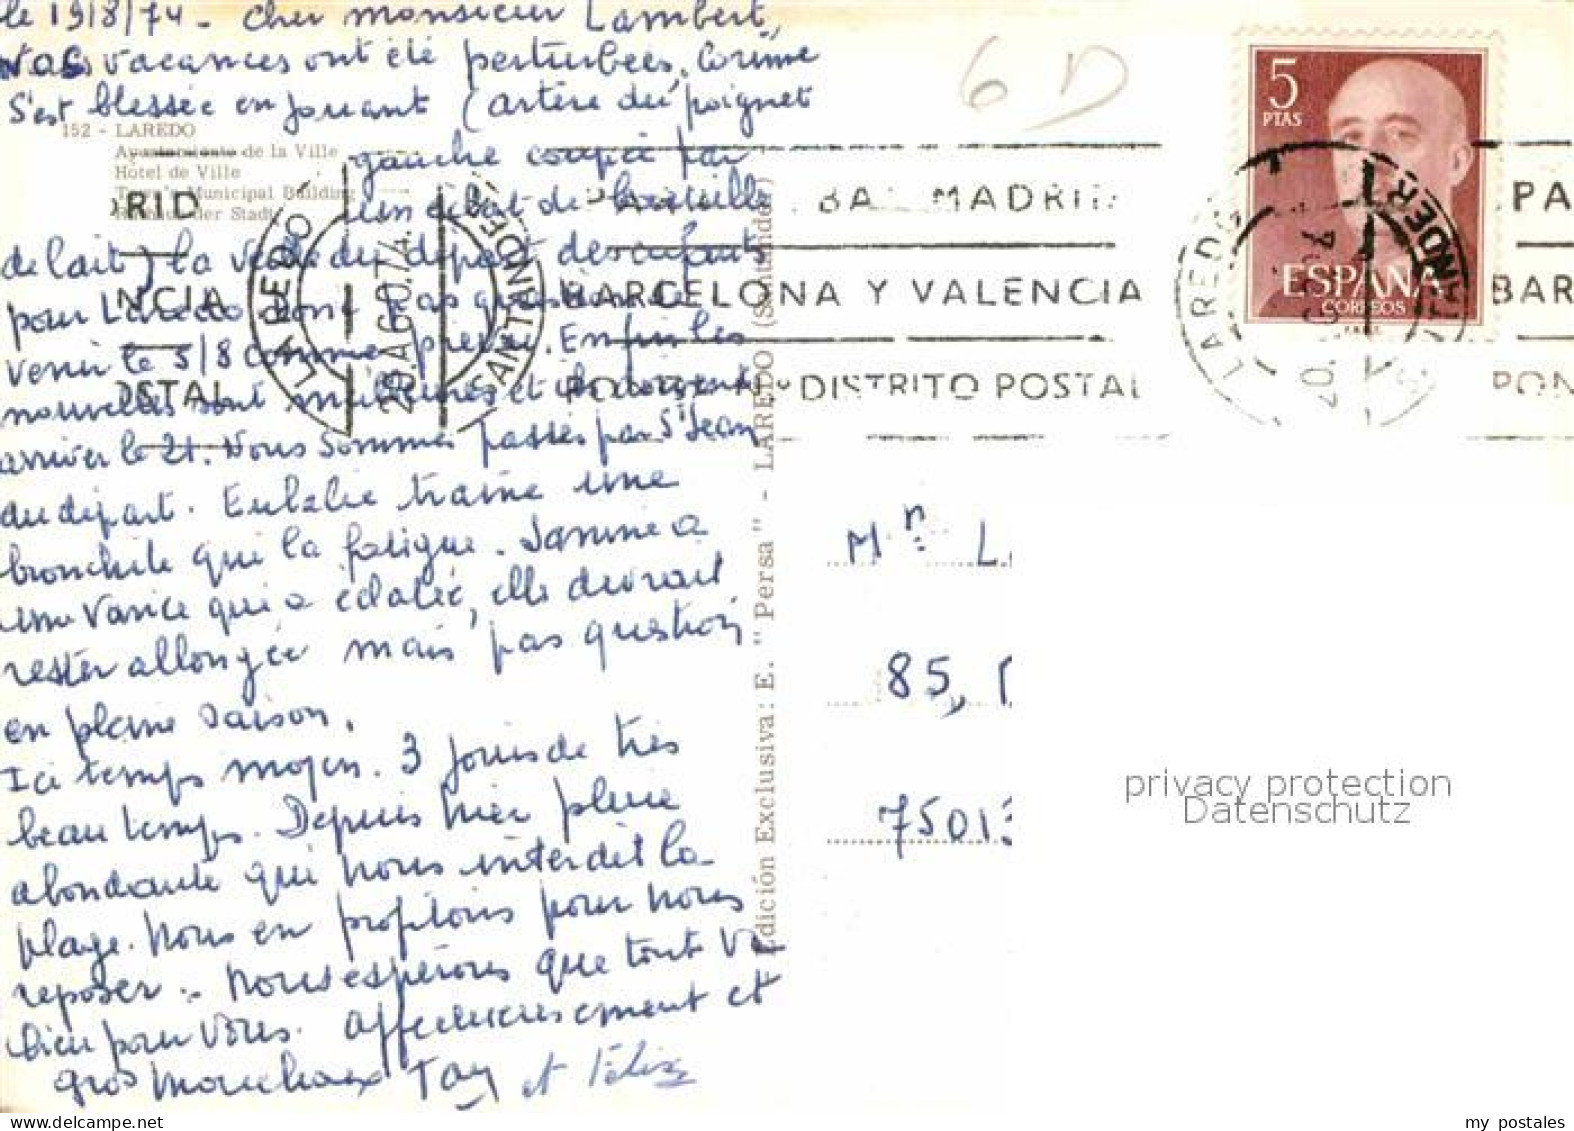 le 19/8/74 - Cher monsieur Lambert,
Nos vacances ont été perturbées. Corinne
S'est blessée en jouant (artère du poignet
gauche coupée par
un éclat de bouteille
de lait) la veille du départ des enfants
pour Laredo donc pas question de
venir le 5/8 comme prévu. Enfin les
nouvelles sont meilleures et ils doivent
arriver le 21. Nous sommes passés par St Jean
au départ. Eulalie traine une
bronchite qui la fatigue. Janine a
une varice qui a éclatée, elle devrait
rester allongée mais pas question
en pleine saison.
Ici temps moyen. 3 jours de très
beau temps. Depuis hier pluie
abondante qui nous interdit la
plage. Nous en profitons pour nous
reposer. Nous espérons que tout va
bien pour vous. Affectueusement et
gros mouchoux Tony et Félix
152 - LAREDO
Ayuntamiento de la Ville
Hôtel de Ville
Town's Municipal Building
der Stadt
Edición Exclusiva: E. "Persa" - LAREDO (Santander)
RID
NCIA
OSTAL
LAREDO
20.AGO.74
SANTANDER
MADRID
BARCELONA Y VALENCIA
PONGA Nº DISTRITO POSTAL
6 D
5
PTAS
ESPAÑA
CORREOS
F.N.M.T.
LAREDO
SANTANDER
PA
BAR
PON
Mr L
85,
75013
privacy protection
Datenschutz
my postales